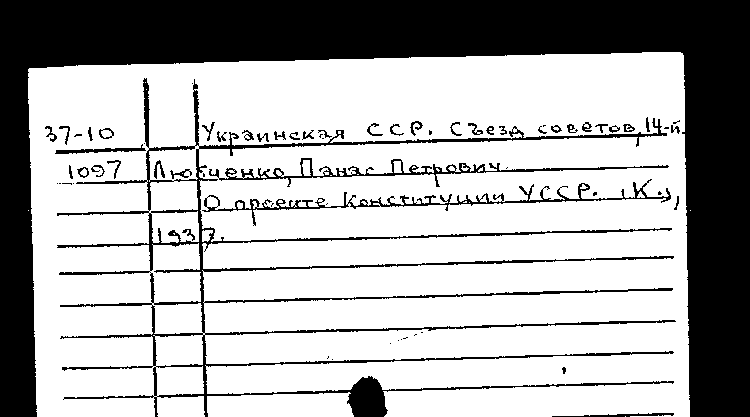 37-10 Украинская ССР. Съезд советов, 14-й.
1097 Любченко, Панас Петрович
О проекте Конституции УССР. (К.),
1937.